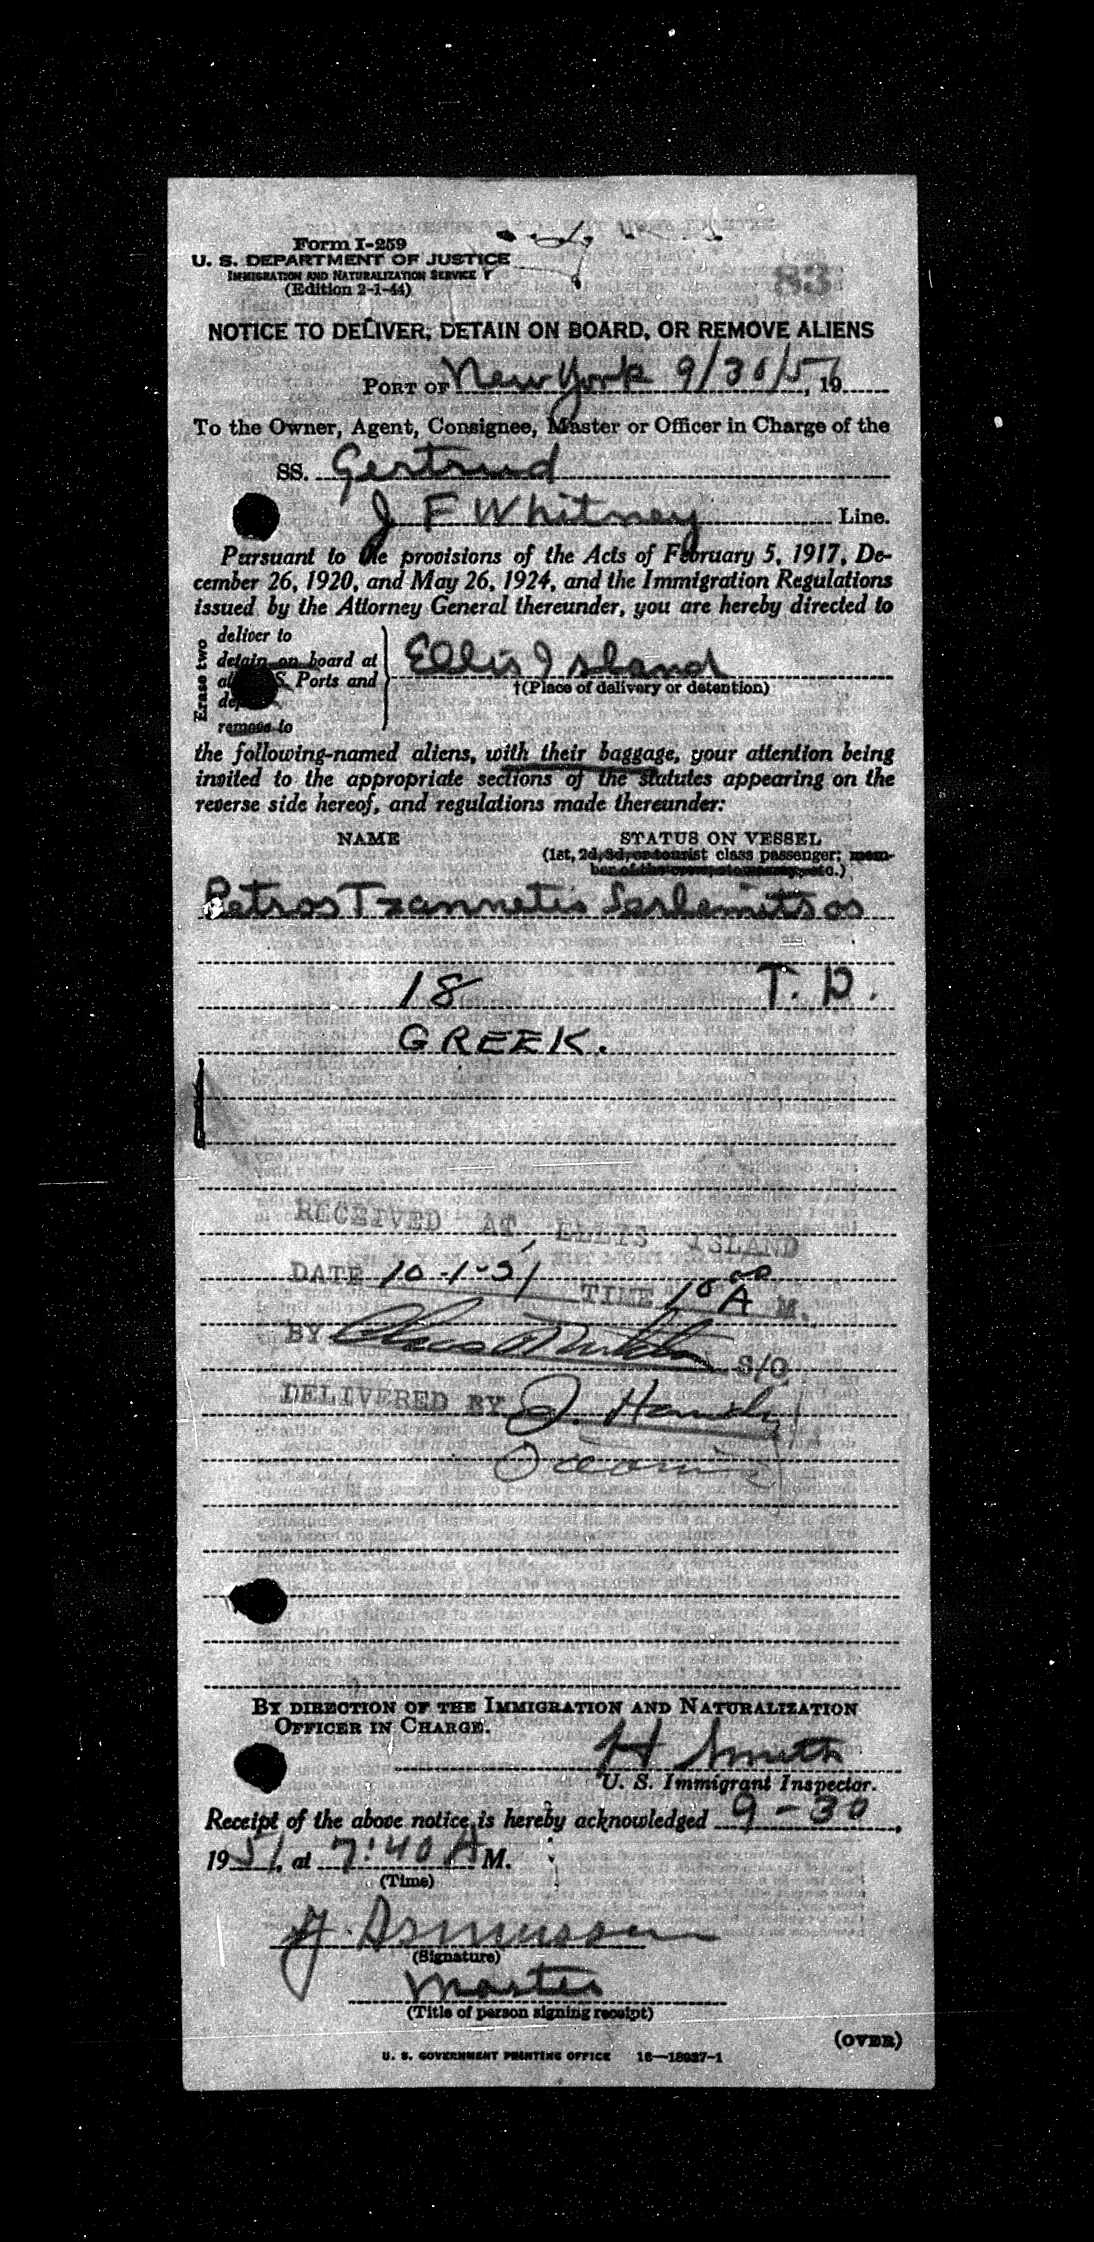 Form I-259
U. S. DEPARTMENT OF JUSTICE
IMMIGRATION AND NATURALIZATION SERVICE
(Edition 2-1-44)
83
NOTICE TO DELIVER, DETAIN ON BOARD, OR REMOVE ALIENS
PORT OF New York 9/30/51, 19
To the Owner, Agent, Consignee, Master or Officer in Charge of the
SS. Gertrud
J F Whitney Line.
Pursuant to the provisions of the Acts of February 5, 1917, De-
cember 26, 1920, and May 26, 1924, and the Immigration Regulations
issued by the Attorney General thereunder, you are hereby directed to
Erase two
deliver to
detain on board at
all S. Ports and
remove to
Ellis Island
†(Place of delivery or detention)
the following-named aliens, with their baggage, your attention being
invited to the appropriate sections of the statutes appearing on the
reverse side hereof, and regulations made thereunder:
NAME STATUS ON VESSEL
(1st, 2d, 3d, or tourist class passenger; mem-
ber of the crew, stowaway, etc.)
Petros Tzannetis
18 T. D.
GREEK.
RECEIVED AT ELLIS ISLAND
DATE 10-1-51 TIME 10 00 A M.
BY S/O
DELIVERED BY J.
BY DIRECTION OF THE IMMIGRATION AND NATURALIZATION
OFFICER IN CHARGE.
H Smith
U. S. Immigrant Inspector.
Receipt of the above notice is hereby acknowledged 9-30,
1951, at 7:40 A M.
(Time)
J. Asmussen
(Signature)
Master
(Title of person signing receipt)
(OVER)
U. S. GOVERNMENT PRINTING OFFICE 16—18937-1